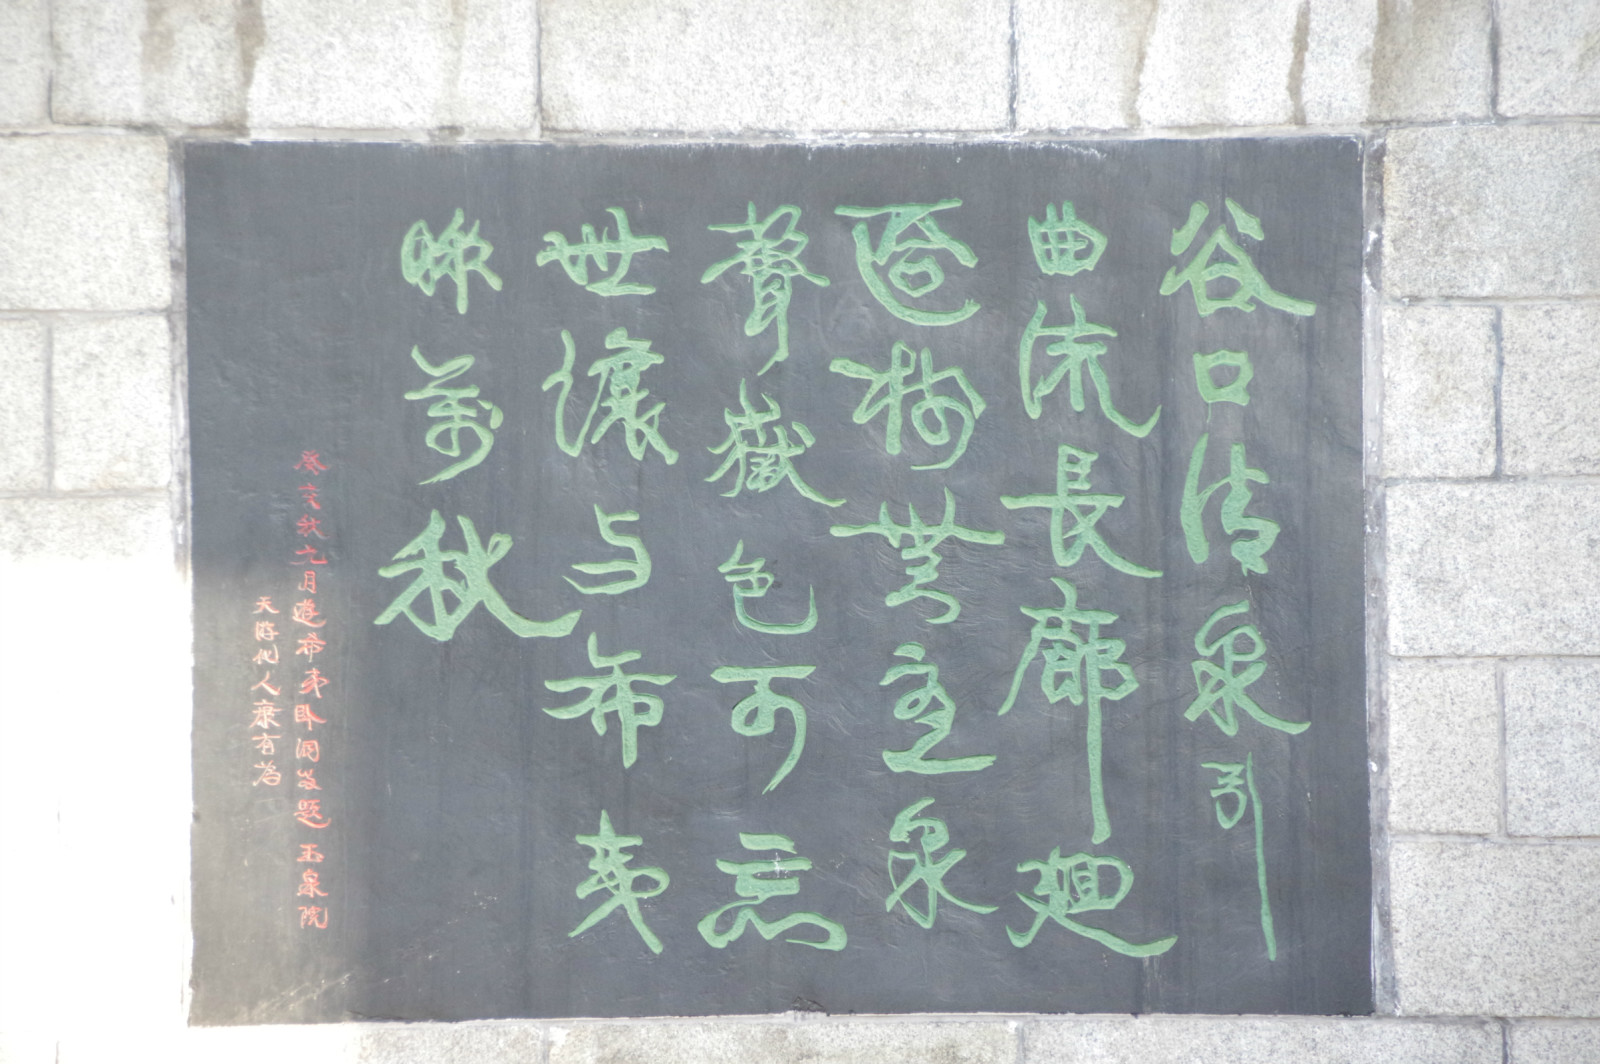 谷口清泉引
曲流長廊廻
樹無泉
聲嶽色可忘
世讓与希夷
萬秋
癸亥秋九月遊希夷卧洞並題玉泉院
天游化人康有為